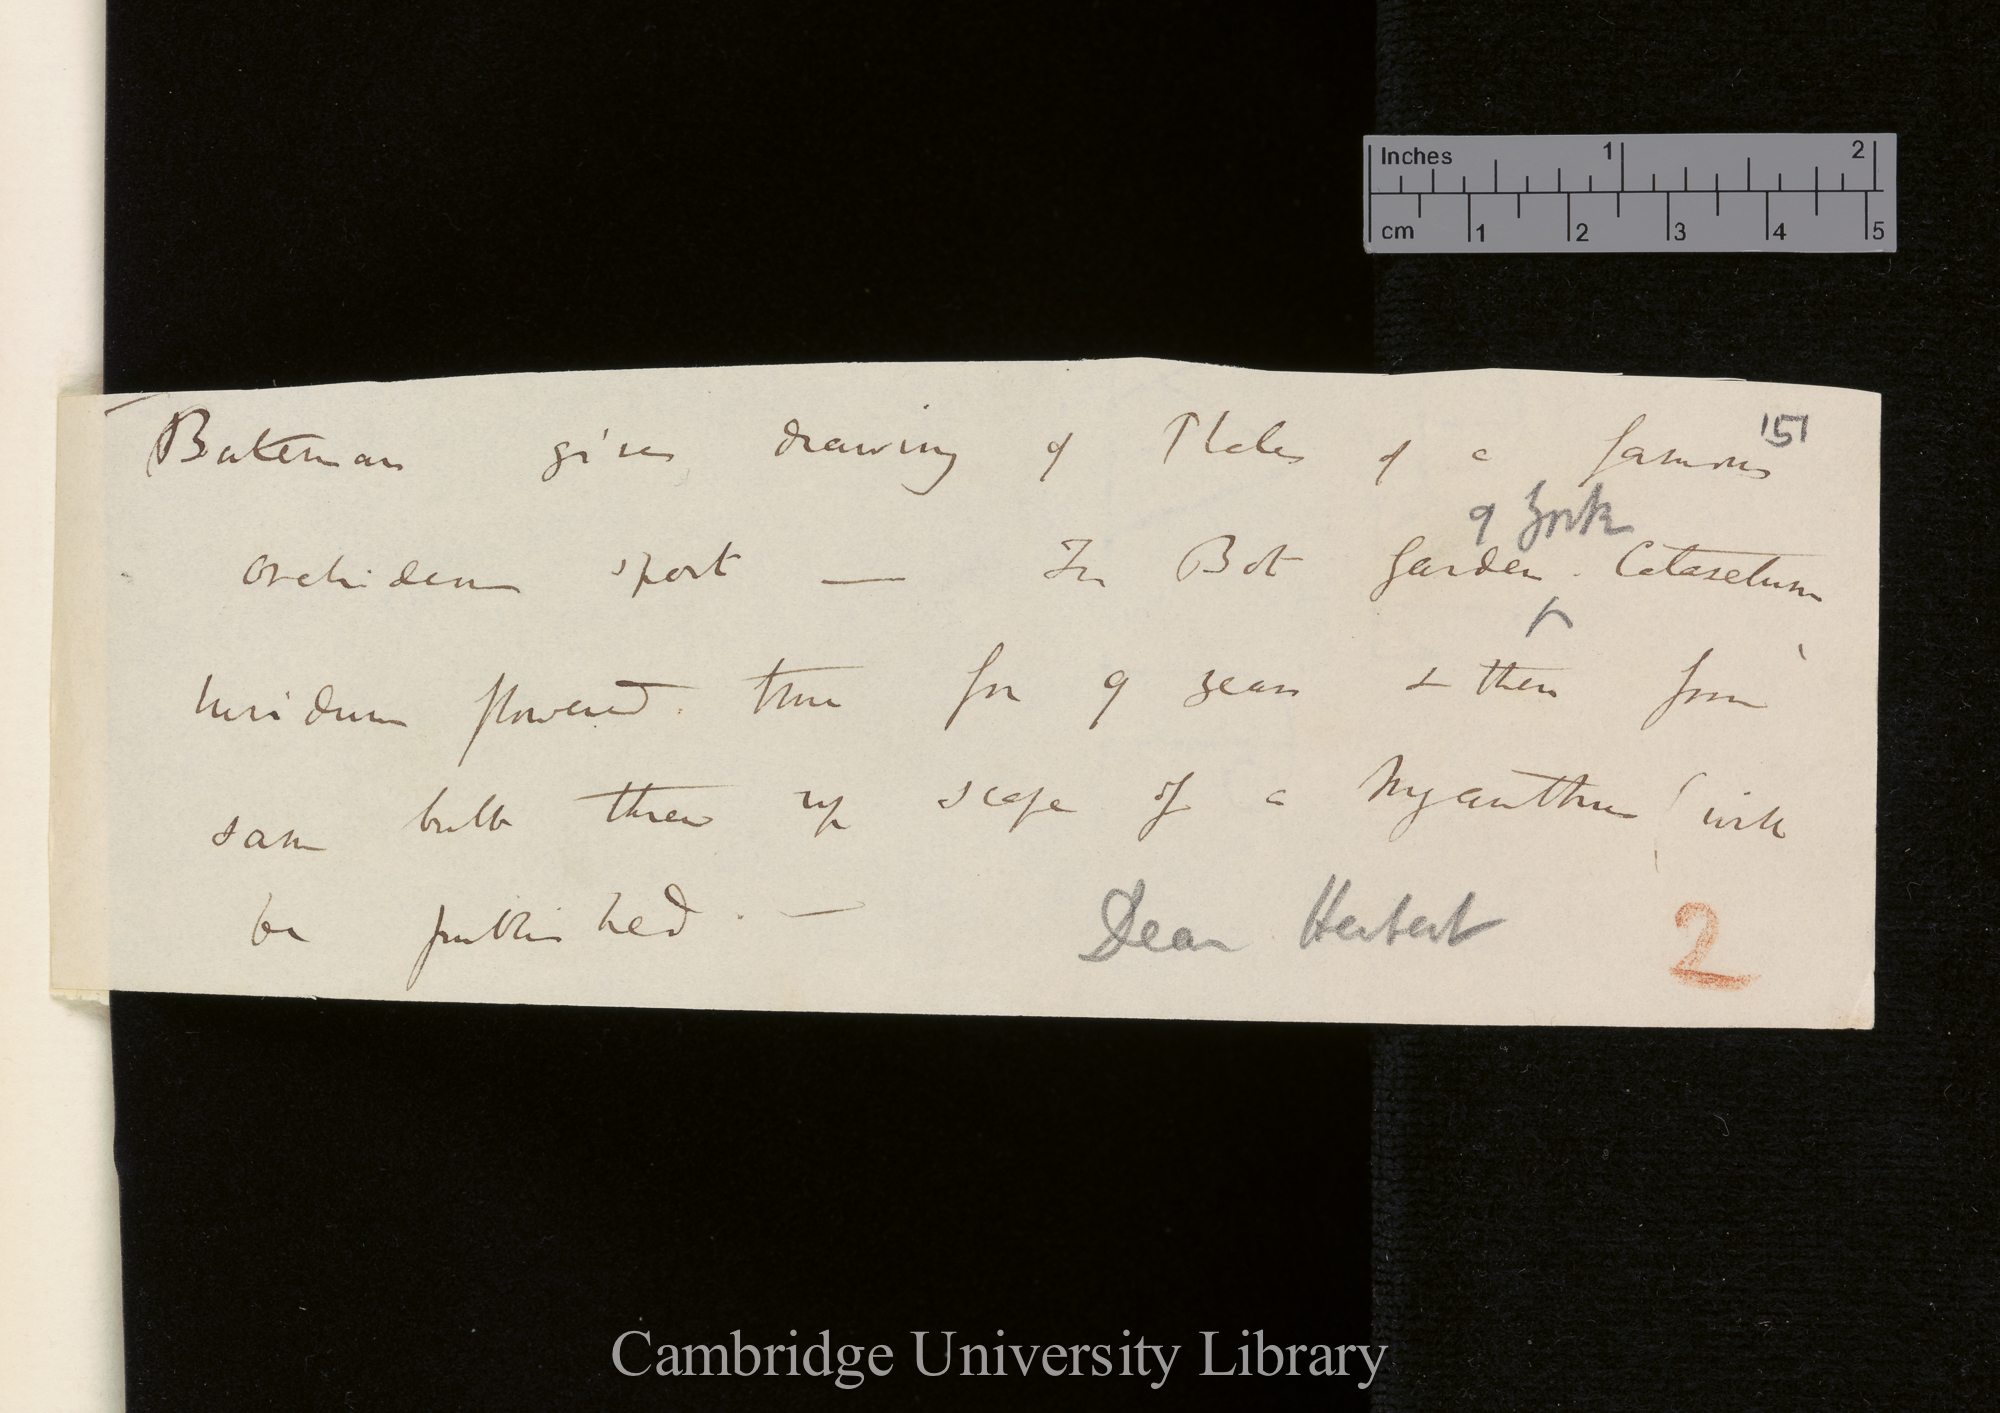 Inches 1 2
cm 1 2 3 4 5
151
Bateman gives drawing of Plates of a famous
of York
orchideous sport — In Bot Garden. Catasetum
luridum flowered true for 9 years & then from
same bulb threw up scape of a Myanthus (will
be published. —
Dean Herbert
2
Cambridge University Library